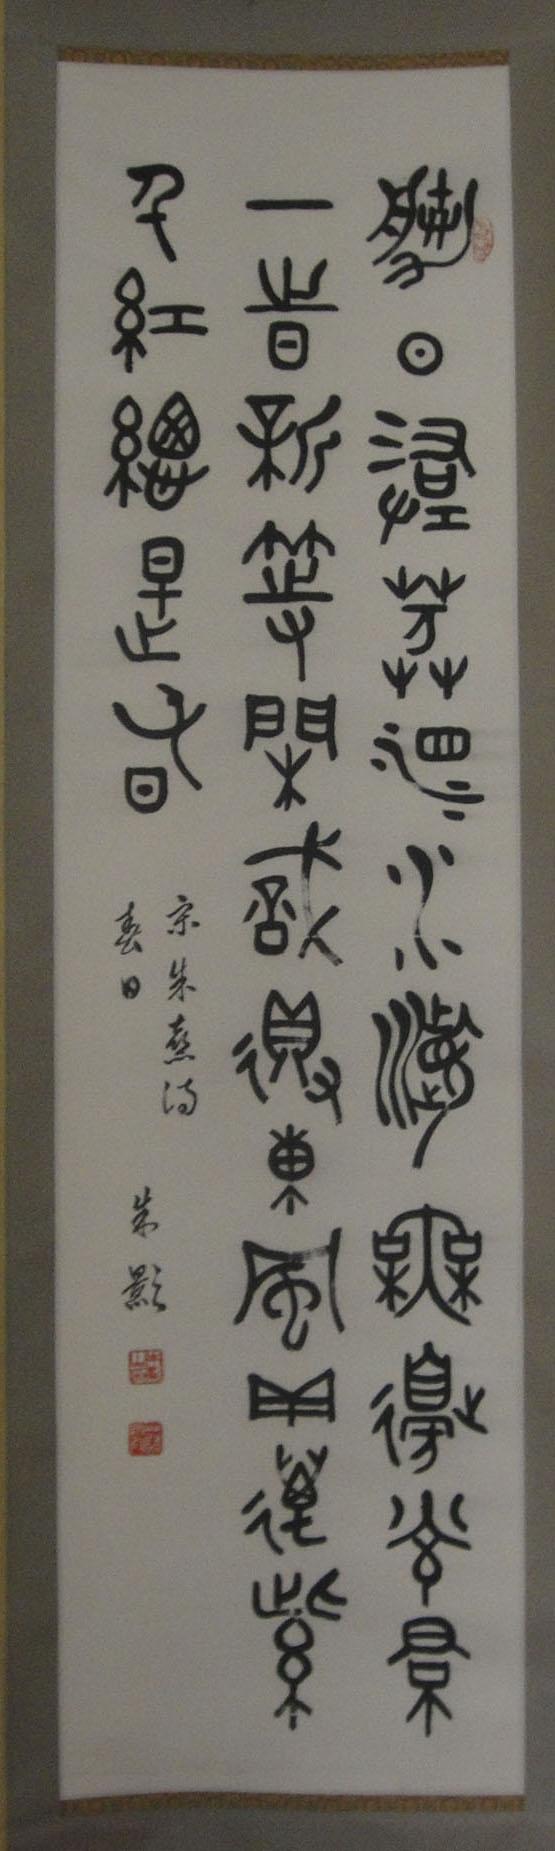 勝日尋芳泗水濱無邊光景
一時新等閑識得東風面萬紫
千紅總是春
宋朱熹詩
春日
朱